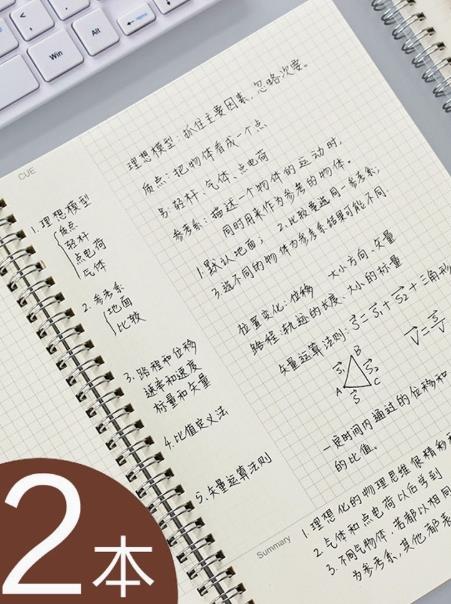 Win
Alt
CUE
1.理想模型
质点
轻杆
点电荷
气体
2.参考系
地面
比较
3.路程和位移
速率和速度
标量和矢量
4.比值定义法
5.矢量运算法则
理想模型:抓住主要因素,忽略次要。
质点:把物体看成一个点
轻杆、气体、点电荷
参考系:描述一个物体的运动时,
同时用来作为参考的物体。
1.默认地面; 2.比较要选同一参考系;
3.选不同的物体为参考系结果可能不同.
位置变化:位移 大小方向-矢量
路程:轨迹的长度、大小的标量
矢量运算法则:S=S₁+S₂+三角形
S₁ B S₂
A S C
V=
一定时间内通过的位移和
的比值。
Summary
1.理想化的物理思维很精
2.气体和点电荷以后学到
3.不同物体 若都以相同
为参考系,其他都
2本